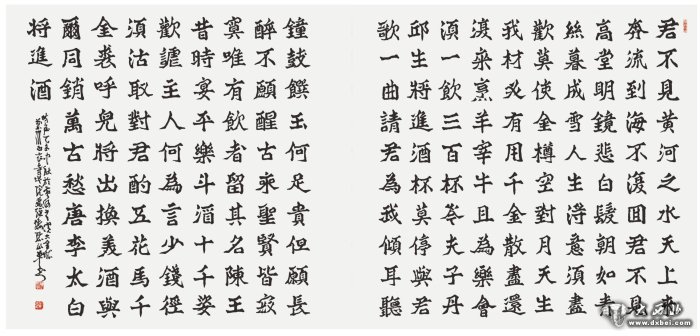 君不見黄河之水天上來
奔流到海不復回君不見
高堂明鏡悲白髮朝如青
絲暮成雪人生得意須盡
歡莫使金樽空對月天生
我材必有用千金散盡還
復來烹羊宰牛且為樂會
須一飲三百杯岑夫子丹
邱生將進酒杯莫停與君
歌一曲請君為我傾耳聽
鐘鼓饌玉何足貴但願長
醉不願醒古來聖賢皆寂
寞唯有飲者留其名陳王
昔時宴平樂斗酒十千恣
歡謔主人何為言少錢徑
須沽取對君酌五花馬千
金裘呼兒將出換美酒與
爾同銷萬古愁唐李太白
将進酒
www.dxbei.com